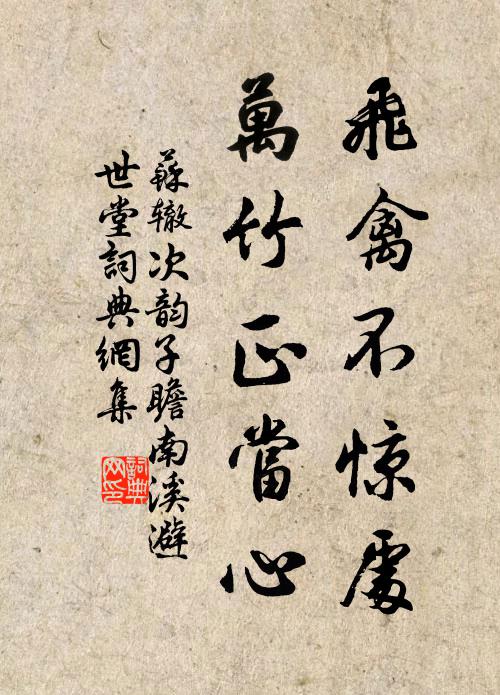 飛禽不惊處
萬竹正當心
蘇辙次韵子瞻南溪避
世堂詞典網集
詞典
网印